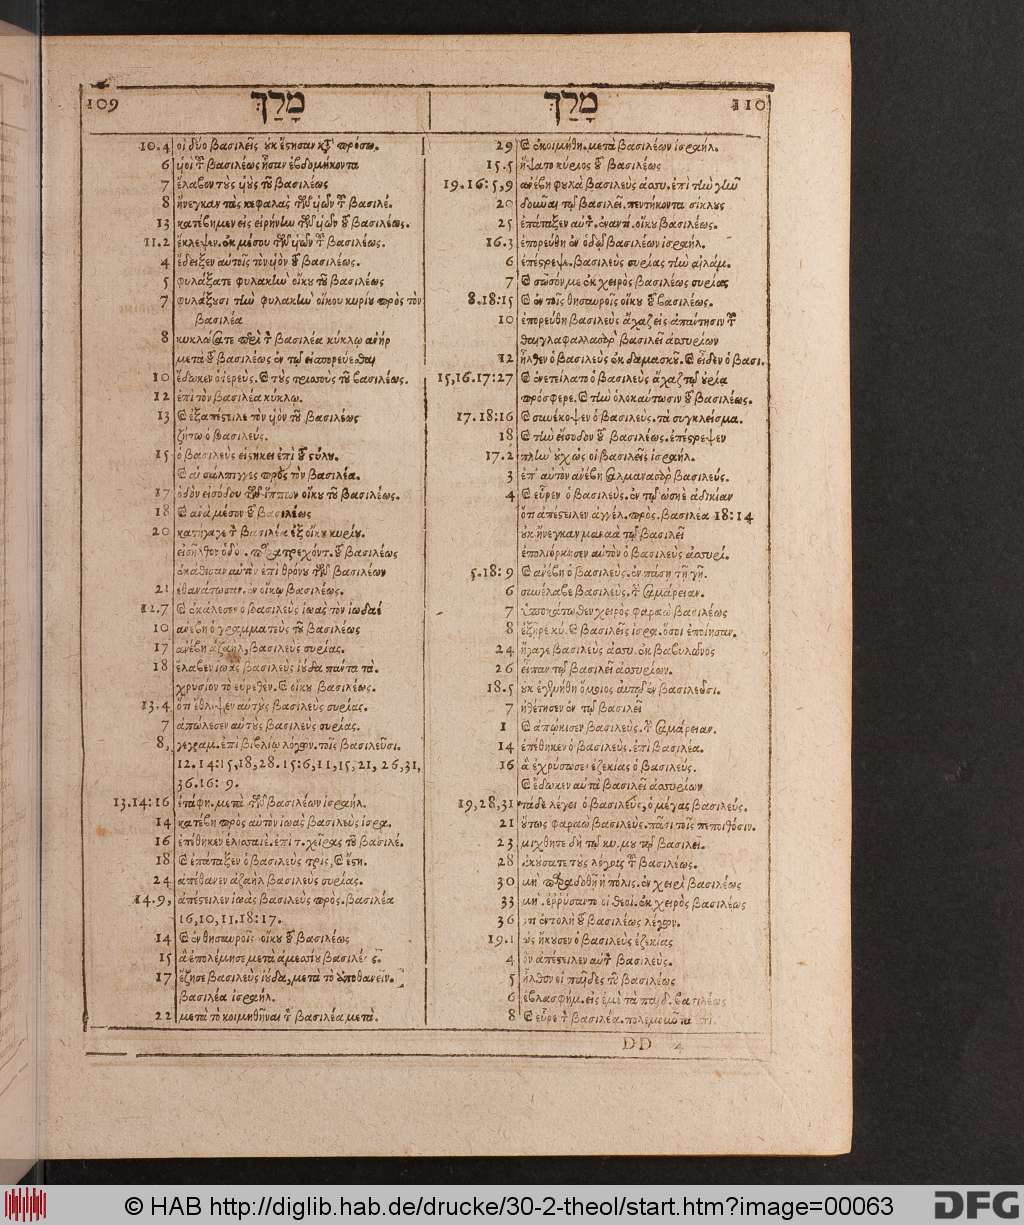 109 מָלַךְ
מָלַךְ 110
10.4 οἱ δύο βασιλεῖς οὐκ ἔστησαν κτ πρόσω.
6 υἱοὶ τ βασιλέως ἦσαν ἑβδομήκοντα
7 ἔλαβον τοὺς υἱοὺς τοῦ βασιλέως
8 ἤνεγκαν τὰς κεφαλὰς τῶν υἱῶν τ βασιλέ.
13 κατέβημεν εἰς εἰρήνην τῶν υἱῶν τοῦ βασιλέως.
11.2 ἔκλεψεν. ἐκ μέσου τῶν υἱῶν τ βασιλέως.
4 ἔδειξεν αὐτοῖς τὸν υἱὸν τοῦ βασιλέως.
5 φυλάξατε φυλακὴν οἴκου τοῦ βασιλέως
7 φυλάξουσι τὴν φυλακὴν οἴκου κυρίου πρὸς τὸν
βασιλέα
8 κυκλώσατε τ βασιλέα κύκλῳ ἀνήρ
μετὰ τοῦ βασιλέως ἐν τῷ εἰσπορεύεσθαι
10 ἔδωκεν ὁ ἱερεὺς. καὶ τοὺς τρισσοὺς τοῦ βασιλέως.
12 ἐπὶ τὸν βασιλέα κύκλῳ.
13 καὶ ἐξαπέστειλε τὸν υἱὸν τοῦ βασιλέως
ζήτω ὁ βασιλεύς.
15 ὁ βασιλεὺς εἱστήκει ἐπὶ τοῦ στύλου.
καὶ αἱ σάλπιγγες πρὸς τὸν βασιλέα.
17 ὁδὸν εἰσόδου τῶν ἵππων οἴκου τοῦ βασιλέως.
18 καὶ ἀνὰ μέσον τοῦ βασιλέως
20 κατήγαγε τ βασιλέα ἐξ οἴκου κυρίου.
εἰσῆλθον ὁδὸ. παρατρεχόντ. τοῦ βασιλέως
ἐκάθισαν αὐτὸν ἐπὶ θρόνου τῶν βασιλέων
21 ἐθανάτωσαν. ἐν οἴκῳ βασιλέως.
12.7 καὶ ἐκάλεσεν ὁ βασιλεὺς ἰωὰς τὸν ἰωδαὲ
10 ἀνέβη ὁ γραμματεὺς τοῦ βασιλέως
17 ἀνέβη ἀζαὴλ, βασιλεὺς συρίας.
18 ἔλαβεν ἰωὰς βασιλεὺς ἰούδα πάντα τὰ.
χρυσίον τὸ εὑρεθὲν. καὶ οἴκου βασιλέως.
13.4 ὅτι ἔθλιψεν αὐτοὺς βασιλεὺς συρίας.
7 ἀπώλεσεν αὐτοὺς βασιλεὺς συρίας.
8, γεγραμ. ἐπὶ βιβλίῳ λόγων. τοῖς βασιλεῦσι.
12.14:15,18,28.15:6,11,15,21,26,31,
36.16:9.
13.14:16 ἐτάφη. μετὰ τῶν βασιλέων ἰσραήλ.
14 κατέβη πρὸς αὐτὸν ἰωὰς βασιλεὺς ἰσρα.
16 ἐπέθηκεν ἐλισσαιὲ. ἐπὶ τ. χεῖρας τοῦ βασιλέ.
18 καὶ ἐπάταξεν ὁ βασιλεὺς τρὶς, καὶ ἔστη.
24 ἀπέθανεν ἀζαὴλ βασιλεὺς συρίας.
14.9, ἀπέστειλεν ἰωὰς βασιλεὺς πρὸς. βασιλέα
16,10,11.18:17.
14 καὶ ἐν θησαυροῖς οἴκου τοῦ βασιλέως
15 ἃ ἐπολέμησε μετὰ ἀμεσίου βασιλέως.
17 ἔζησε βασιλεὺς ἰούδα, μετὰ τὸ ἀποθανεῖν.
βασιλέα ἰσραήλ.
22 μετὰ τὸ κοιμηθῆναι τ βασιλέα μετὰ.
29 καὶ ἐκοιμήθη. μετὰ βασιλέων ἰσραήλ.
15.5 ἥψατο κύριος τοῦ βασιλέως
19.16:5,9 ἀνέβη φουλὰ βασιλεὺς ἀσσυ. ἐπὶ τὴν γῆν
20 δοῦναι τῷ βασιλεῖ. πεντήκοντα σίκλους
25 ἐπάταξεν αὐτ. ἐναντί. οἴκου βασιλέως.
16.3 ἐπορεύθη ἐν ὁδῷ βασιλέων ἰσραήλ.
6 ἐπέστρεψε. βασιλεὺς συρίας τὴν αἰλάμ.
7 καὶ σῶσόν με ἐκ χειρὸς βασιλέως συρίας
8.18:15 καὶ ἐν τοῖς θησαυροῖς οἴκου τοῦ βασιλέως.
10 ἐπορεύθη βασιλεὺς ἄχαζ εἰς ἀπάντησιν τ
θαιγλαφαλλασὰρ βασιλεῖ ἀσσυρίων
12 ἦλθεν ὁ βασιλεὺς ἐκ δαμασκοῦ. καὶ εἶδεν ὁ βασι.
15,16.17:27 καὶ ἐνετείλατο ὁ βασιλεὺς ἄχαζ τῷ οὐρίᾳ
πρόσφερε. καὶ τὴν ὁλοκαύτωσιν τοῦ βασιλέως.
17.18:16 καὶ συνέκοψεν ὁ βασιλεὺς. τὰ συγκλείσμα.
18 καὶ τὴν εἴσοδον τοῦ βασιλέως. ἐπέστρεψεν
17.2 πλὴν οὐχ ὡς οἱ βασιλεῖς ἰσραήλ.
3 ἐπ' αὐτὸν ἀνέβη σαλμανασὰρ βασιλεύς.
4 καὶ εὗρεν ὁ βασιλεὺς. ἐν τῷ ὡσηὲ ἀδικίαν
ὅτι ἀπέστειλεν ἀγγέλ. πρὸς. βασιλέα 18:14
οὐκ ἤνεγκαν μαναὰ τῷ βασιλεῖ
ἐπολιόρκησεν αὐτὸν ὁ βασιλεὺς ἀσσυρί.
5.18:9 καὶ ἀνέβη ὁ βασιλεὺς. ἐν πάσῃ τῇ γῇ.
6 συνέλαβε βασιλεὺς. τ σαμάρειαν.
7 ὑποκάτωθεν χειρὸς φαραὼ βασιλέως
8 ἐξῇρε κύ. καὶ βασιλεῖς ἰσρα. ὅσοι ἐποίησαν.
24 ἤγαγε βασιλεὺς ἀσσυ. ἐκ βαβυλῶνος
26 εἶπαν τῷ βασιλεῖ ἀσσυρίων.
18.5 οὐκ ἐγενήθη ὅμοιος αὐτῷ ἐν βασιλεῦσι.
7 ἠθέτησεν ἐν τῷ βασιλεῖ
1 καὶ ἀπῴκισεν βασιλεὺς. τ σαμάρειαν.
14 ἐπέθηκεν ὁ βασιλεὺς. ἐπὶ βασιλέα.
16 ἃ ἐχρύσωσεν ἐζεκίας ὁ βασιλεύς.
καὶ ἔδωκεν αὐτὰ βασιλεῖ ἀσσυρίων
19,28,31 τάδε λέγει ὁ βασιλεὺς, ὁ μέγας βασιλεύς.
21 οὕτως φαραὼ βασιλεὺς. πᾶσι τοῖς πεποιθόσιν.
23 μίχθητε δὴ τῷ κυ. μου τῷ βασιλεῖ.
28 ἀκούσατε τοὺς λόγους τ βασιλέως.
30 μὴ παραδοθῇ ἡ πόλις. ἐν χειρὶ βασιλέως
33 μὴ. ἐρρύσαντο οἱ θεοὶ. ἐκ χειρὸς βασιλέως
36 ἐντολὴ τοῦ βασιλέως λέγων.
19.1 ὡς ἤκουσεν ὁ βασιλεὺς ἐζεκίας
4 ὃν ἀπέστειλεν αὐτ βασιλεὺς.
5 ἦλθον οἱ παῖδες τοῦ βασιλέως
6 ἐβλασφήμ. εἰς ἐμὲ τὰ παιδ. βασιλέως
8 καὶ εὗρε τ βασιλέα. πολεμοῦντα ἐπὶ
DD 4
© HAB http://diglib.hab.de/drucke/30-2-theol/start.htm?image=00063
DFG